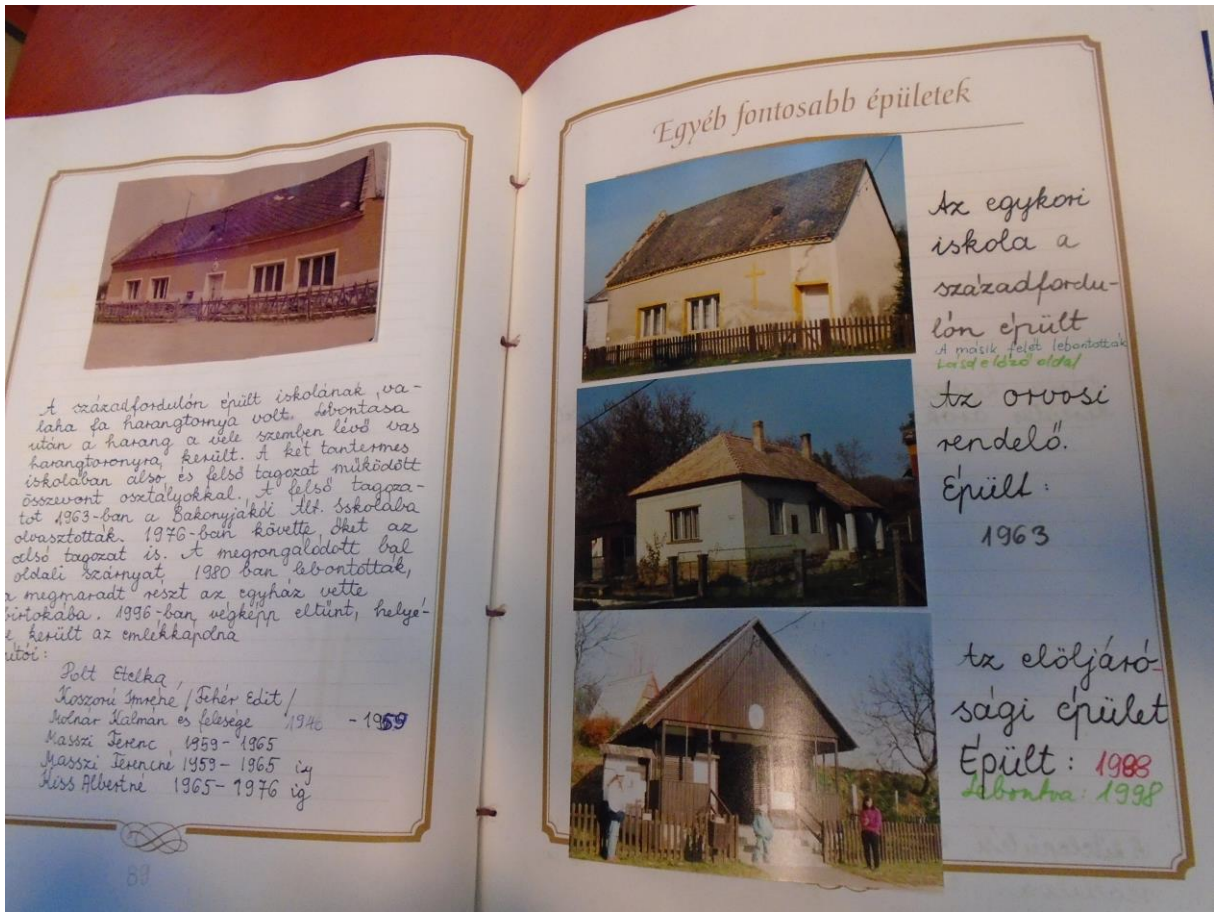 A századfordulón épült iskolának, va-
laha fa harangtornya volt. Lebontása
után a harang a vele szemben lévő vas
harangtoronyra, került. A két tantermes
iskolában alsó, és felső tagozat működött
összevont osztályokkal. A felső tagoza-
tot 1963-ban a Bakonyjákói Ált. Iskolába
olvasztották. 1976-ban követte őket az
alsó tagozat is. A megrongálódott bal
oldali szárnyat, 1980 ban lebontották,
a megmaradt részt az egyház vette
birtokába. 1996-ban végképp eltűnt, helyé-
e került az emlékkápolna
utói:
Holt Etelka
Koszorú Imréné / Fehér Edit /
Molnár Kálmán és felesége 1946 - 1959
Masszi Ferenc 1959-1965
Masszi Ferencné 1959-1965 ig
Kiss Albertné 1965-1976 ig
89
Egyéb fontosabb épületek
Az egykori
iskola a
századfordu-
lón épült
A másik felét lebontották
Lásd előző oldal
Az orvosi
rendelő.
Épült:
1963
Az elöljáró-
sági épület
Épült: 1988
Lebontva: 1998